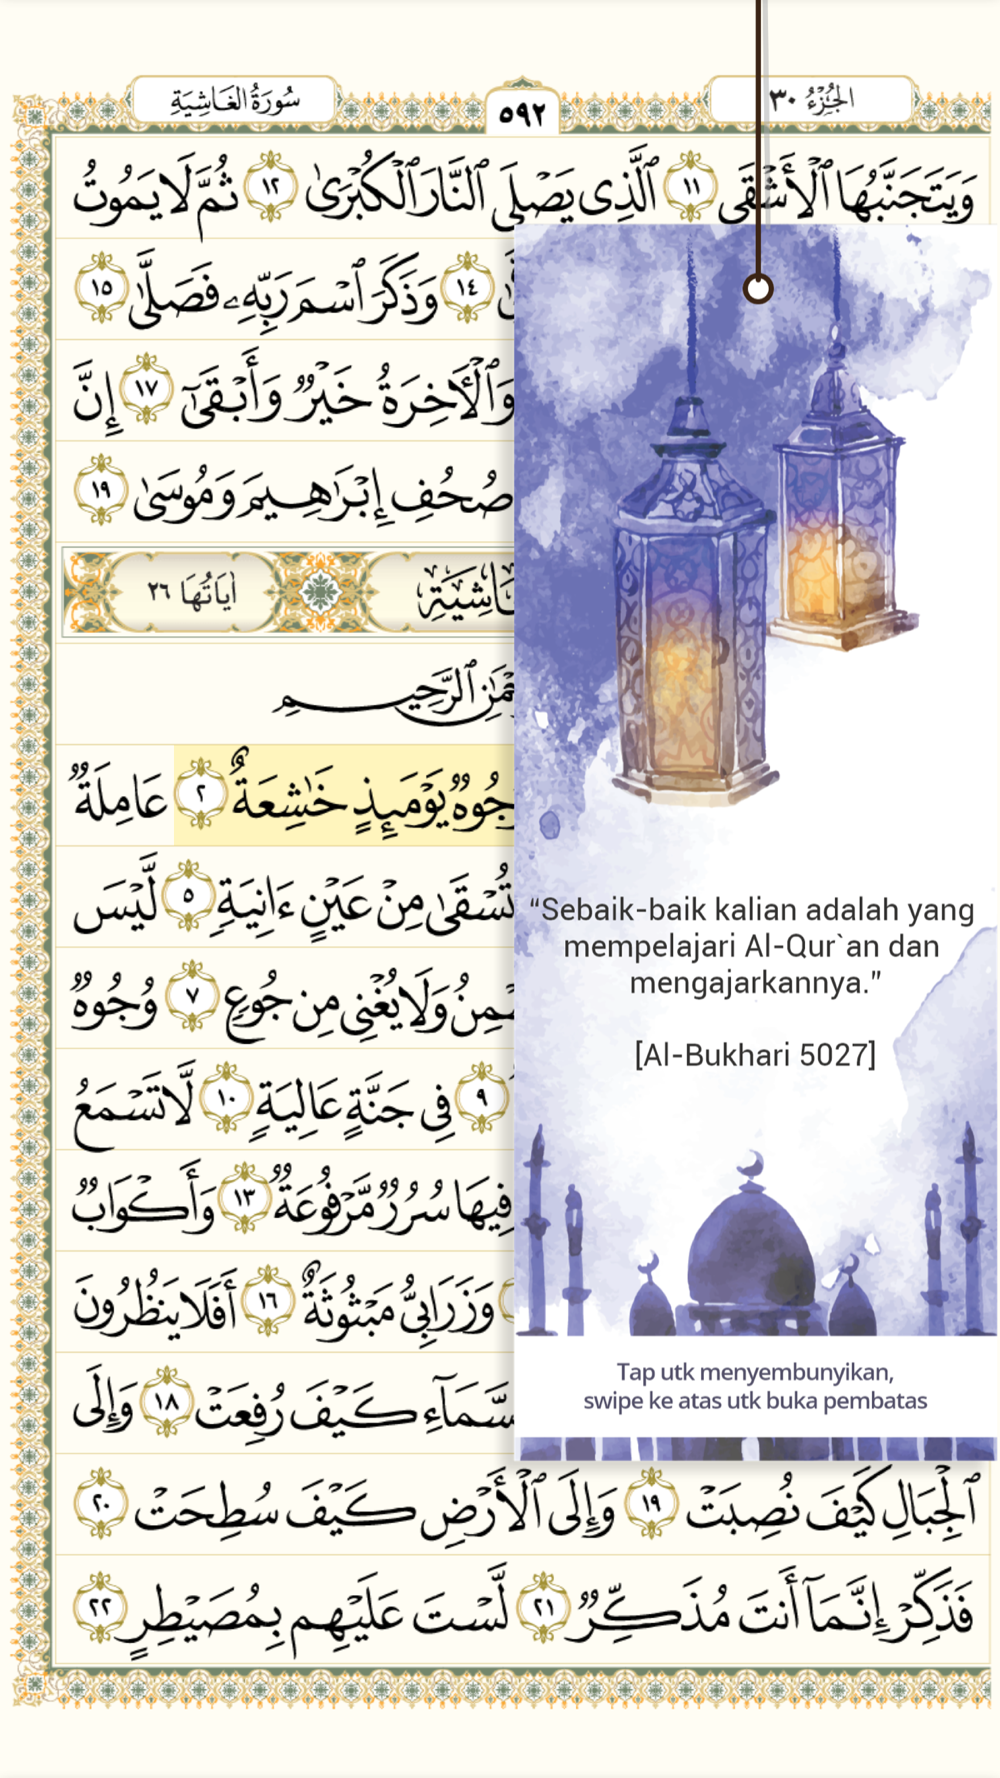 سُورَةُ الغَاشِيَةِ
٥٩٢
الجُزْءُ ٣٠
وَيَتَجَنَّبُهَا ٱلْأَشْقَى ١١ ٱلَّذِى يَصْلَى ٱلنَّارَ ٱلْكُبْرَىٰ ١٢ ثُمَّ لَا يَمُوتُ
١٤ وَذَكَرَ ٱسْمَ رَبِّهِۦ فَصَلَّىٰ ١٥
وَٱلْأَخِرَةُ خَيْرٌ وَأَبْقَىٰٓ ١٧ إِنَّ
صُحُفِ إِبْرَٰهِيمَ وَمُوسَىٰ ١٩
اٰيَاتُهَا ٢٦
ٱلرَّحِيمِ
وُجُوهٌ يَوْمَئِذٍ خَٰشِعَةٌ ٢ عَامِلَةٌ
تُسْقَىٰ مِنْ عَيْنٍ ءَانِيَةٍ ٥ لَّيْسَ
وَلَا يُغْنِى مِن جُوعٍ ٧ وُجُوهٌ
٩ فِى جَنَّةٍ عَالِيَةٍ ١٠ لَّا تَسْمَعُ
فِيهَا سُرُرٌ مَّرْفُوعَةٌ ١٣ وَأَكْوَابٌ
وَزَرَابِىُّ مَبْثُوثَةٌ ١٦ أَفَلَا يَنظُرُونَ
كَيْفَ رُفِعَتْ ١٨ وَإِلَى
ٱلْجِبَالِ كَيْفَ نُصِبَتْ ١٩ وَإِلَى ٱلْأَرْضِ كَيْفَ سُطِحَتْ ٢٠
فَذَكِّرْ إِنَّمَآ أَنتَ مُذَكِّرٌ ٢١ لَّسْتَ عَلَيْهِم بِمُصَيْطِرٍ ٢٢
“Sebaik-baik kalian adalah yang
mempelajari Al-Qur`an dan
mengajarkannya.”
[Al-Bukhari 5027]
Tap utk menyembunyikan,
swipe ke atas utk buka pembatas